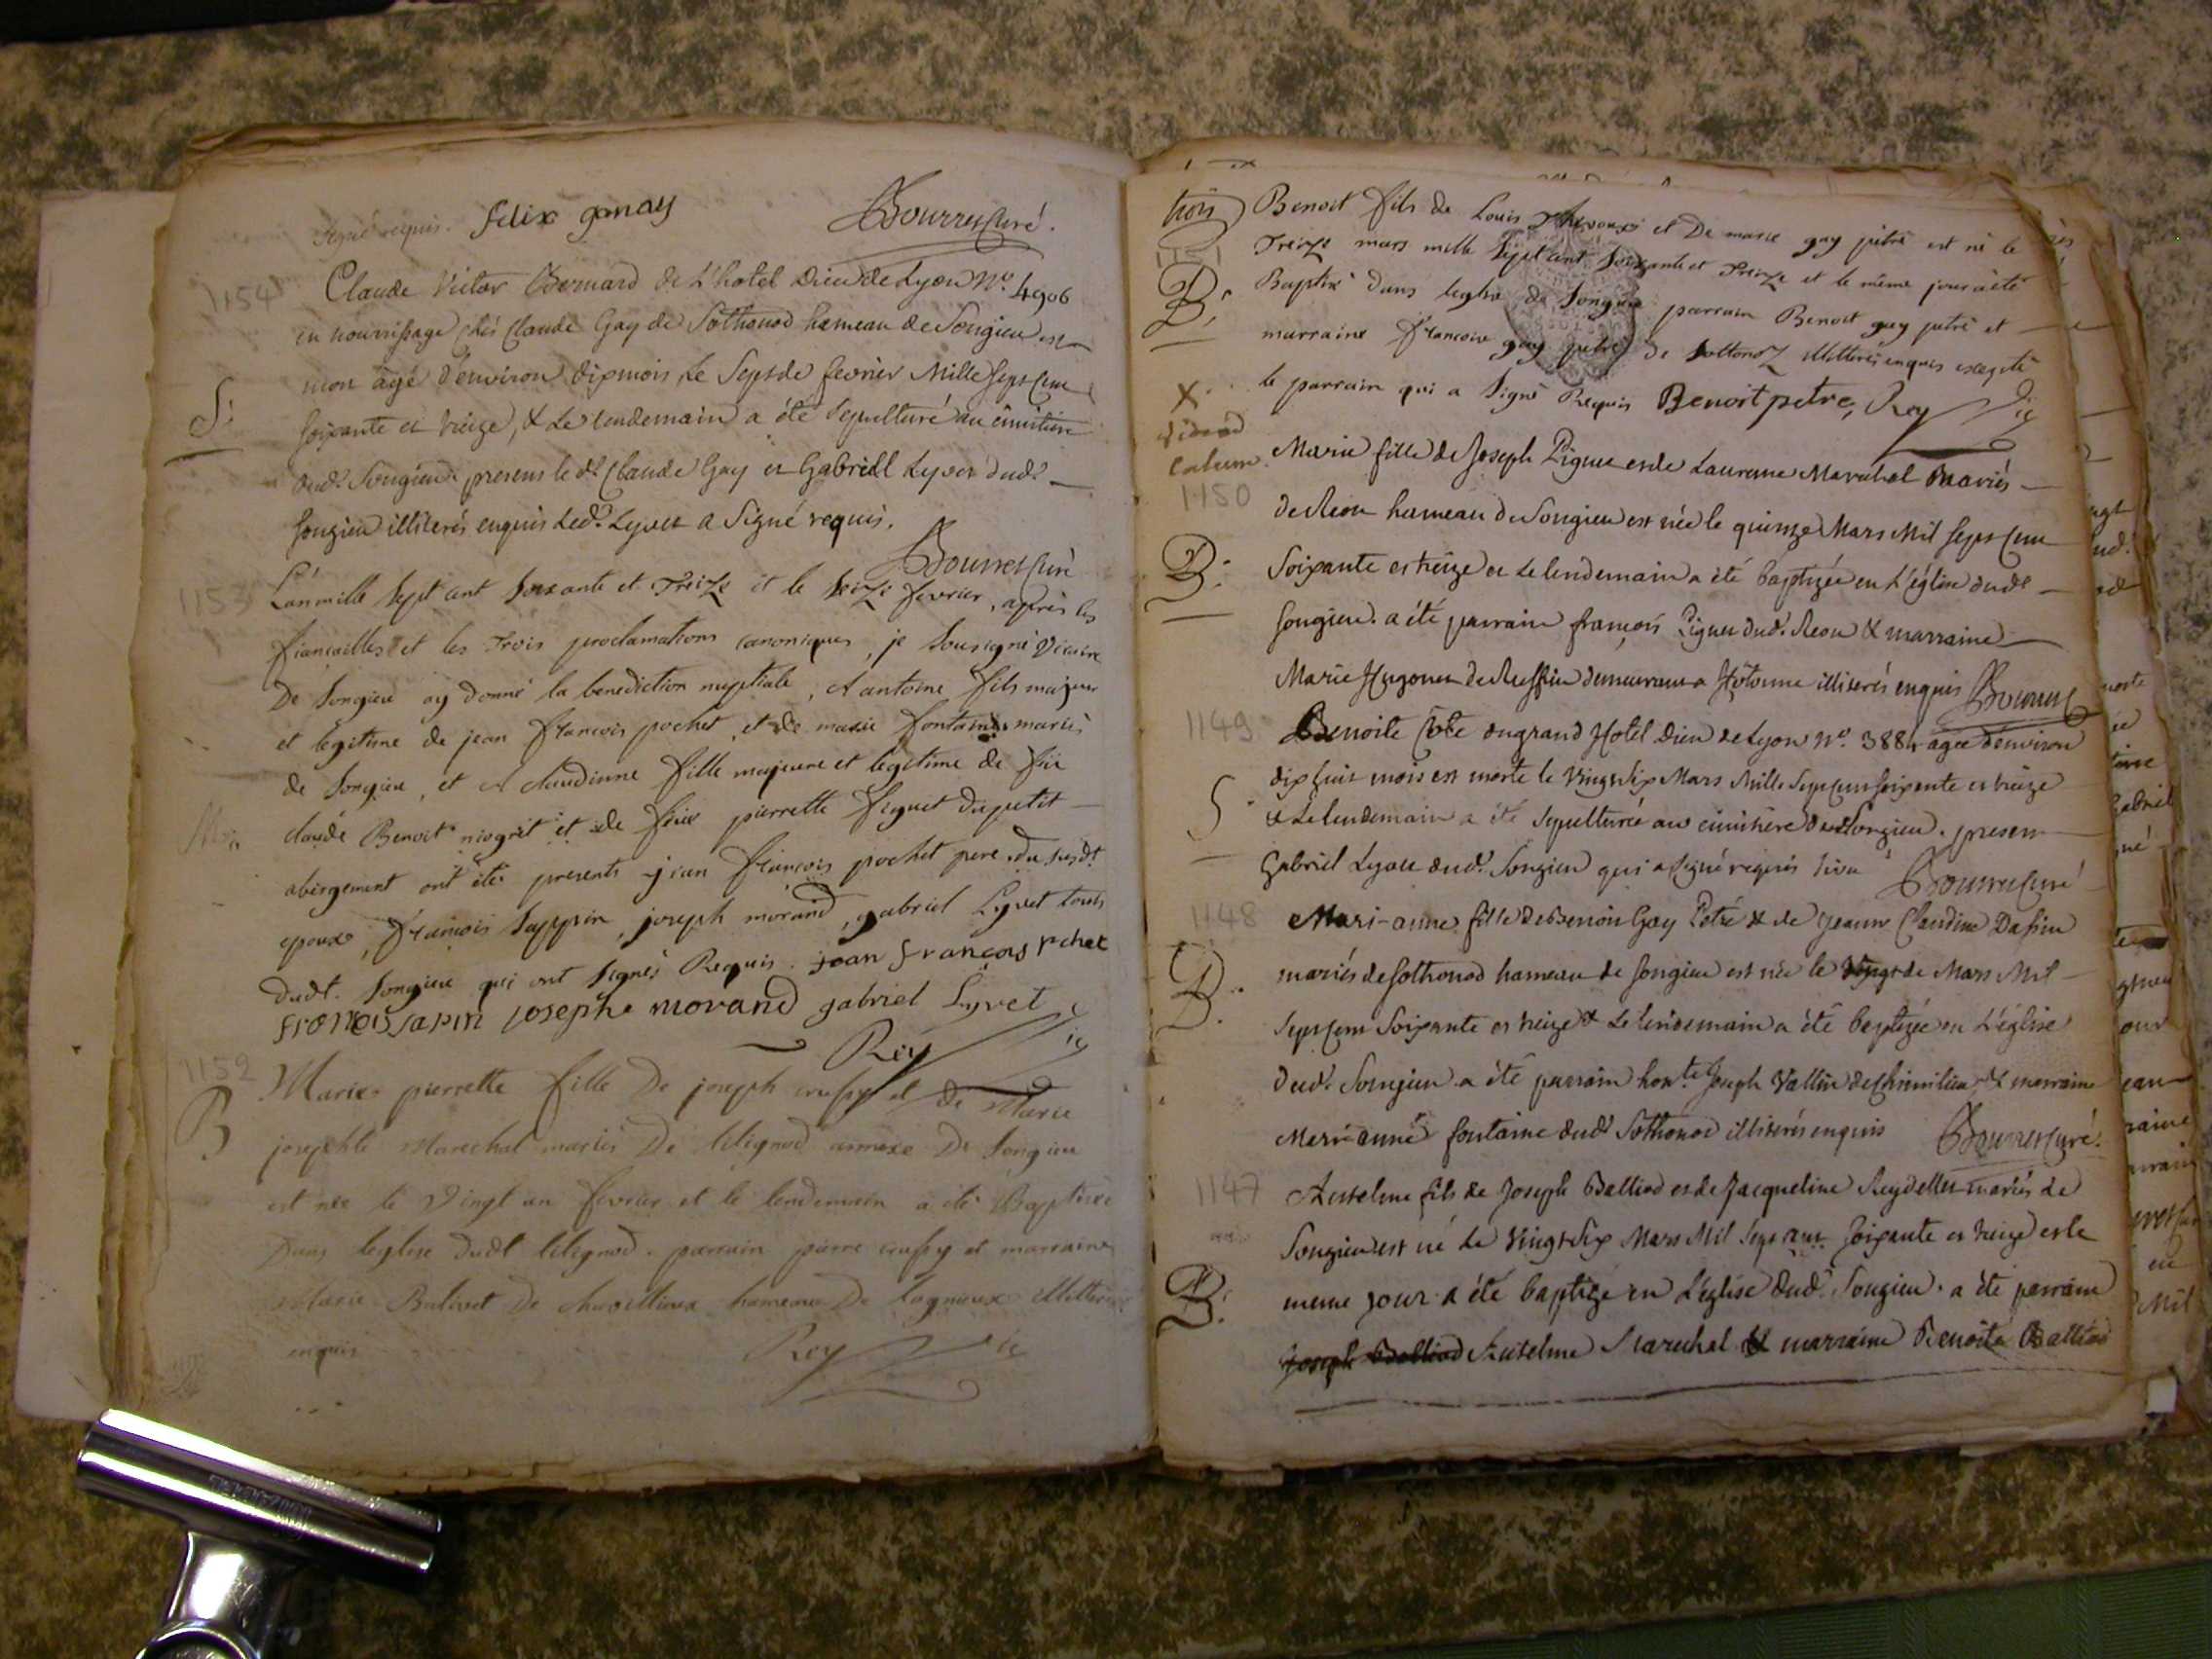 Signé requis. felix ganay Bourret Curé.
1154
Claude Victor Bernard de L'hotel Dieu de Lyon No. 4906
en nourrissage chés Claude Gay de Sothonod hameau de Songieu est
mort agé d'environ dix mois, le Sept de fevrier Mille Sept Cent
S.
soixante et treize, & Le lendemain a été sepulturé au cimitiere
dud. Songieu. presens le dt. Claude Gay et Gabriell Lyvet dud.
Songieu illiterés enquis Led. Lyvet a Signé requis.
Bourret Curé
1153
L'an mille Sept cent soixante et Treize et le Seize fevrier, après les
fiancailles et les Trois proclamations canoniques, je Sousigné Vicaire
De Songieu ay donné la benediction nuptiale, A antoine fils majeur
et legitime de jean francois pochet, et de marie fontaine mariés
de Songieu, et A Claudinne fille majeure et legitime de feu
M.
claude Benoit niogret et de feüe pierrette figuet du petit
abergement ont étés presents jean francois pochet pere du susdt.
epoux, francois Sappin, joseph morand, gabriel Lyvet touts
dudt. Songieu qui ont Signés Requis. jean francois pchet
francois sapin josephe morand gabriel Lyvet
Rey vic
1152
B
Marie pierrette fille De joseph crussy et de Marie
josephte Marechal mariés De lilignod annexe De Songieu
est née le Vingt un fevrier et le lendemain a été Baptisée
Dans l'eglise dudt lilignod. parrain pierre crussy et marraine
Marie Balivet De hameau De illitterés
enquis
Rey vic
trois
Benoit fils de Louis et De marie gay pitré est né le
1151
Treize mars mille Sept cent soixante et Treize et le même jour a été
B.
Baptisé dans l'eglise de Songieu parrain Benoit gay pitré et
marraine francoise gay pitré de Sottonoz illitterés enquis excepté
X.
le parrain qui a Signé Requis Benoit petre, Rey Vic
Marie fille de Joseph Pigner et de Laurence Marechal mariés
1150
de Reou hameau de Songieu est née le quinze Mars Mil Sept Cent
B.
Soixante et treize et Le lendemain a été baptizée en L'église dudt
Songieu. a été parrain françois Pigner dud. Reou & marraine
Marie Hugonet de Ruffieu demeurant a Hotonne illiterés enquis Bourret C
1149
Benoite Côte du grand Hotel Dieu de Lyon No. 3884 agée d'environ
dix huit mois est morte le Vingt Six Mars Mille Sept Cent soixante et treize
S.
& Le lendemain a été sepulturée au cimitiere dud Songieu. presens
Gabriel Lyvet dud. Songieu qui a signé requis Bourret Curé
1148
Mari-anne fille de Benoit Gay Petré & de Jeanne Claudine Dassin
B.
mariés de Sothonod hameau de Songieu est née le Vingt de Mars Mil
Sept Cent Soixante et treize & Le lendemain a été baptizée en L'église
Dud. Songieu. a été parrain hon.te Joseph Vallin de Chimilieu & marraine
Meri-anne fontaine dud Sothonod illiterés enquis Bourret Curé.
1147
Anselme fils de Joseph Balliod et de Jacqueline Reydellet mariés de
Songieu est né Le Vingt Six Mars Mil Sept cent Soixante et treize et le
B.
meme jour a été baptizé en L'église dud. Songieu. a été parrain
Joseph Balliod Anselme Marechal & marraine Benoite Balliod